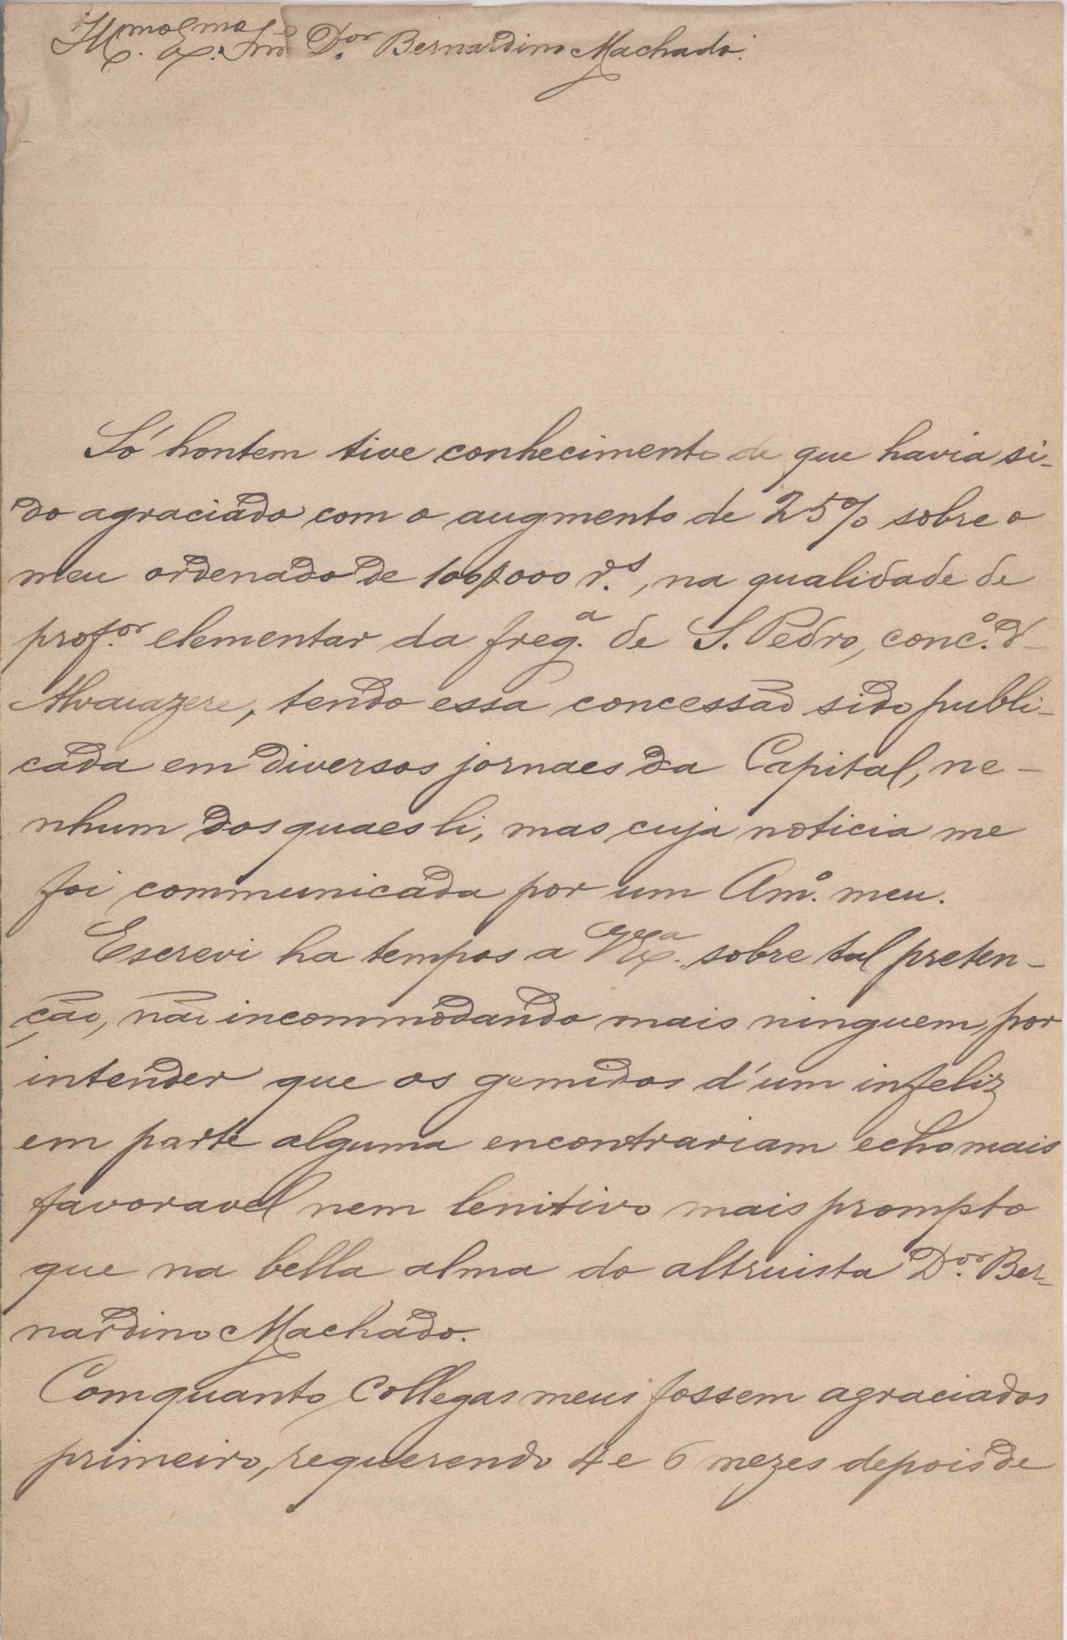 Ill.mo Ex.mo Snr. D.or Bernardino Machado.
Só hontem tive conhecimento de que havia si-
do agraciado com o augmento de 25% sobre o
meu ordenado de 100$000 r.s, na qualidade de
prof.or elementar da freg.a de S. Pedro, conc.o d'
Alvaiazere, tendo essa concessão sido publi-
cada em diversos jornaes da Capital, ne-
nhum dos quaes li, mas cuja noticia me
foi communicada por um Am.o meu.
Escrevi ha tempos a V. Ex.a sobre tal preten-
ção, não incommodando mais ninguem, por
intender que os gemidos d'um infeliz
em parte alguma encontrariam echo mais
favoravel nem lenitivo mais prompto
que na bella alma do altruista D.or Ber-
nardino Machado.
Comquanto Collegas meus fossem agraciados
primeiro, requerendo 4 e 6 mezes depois de